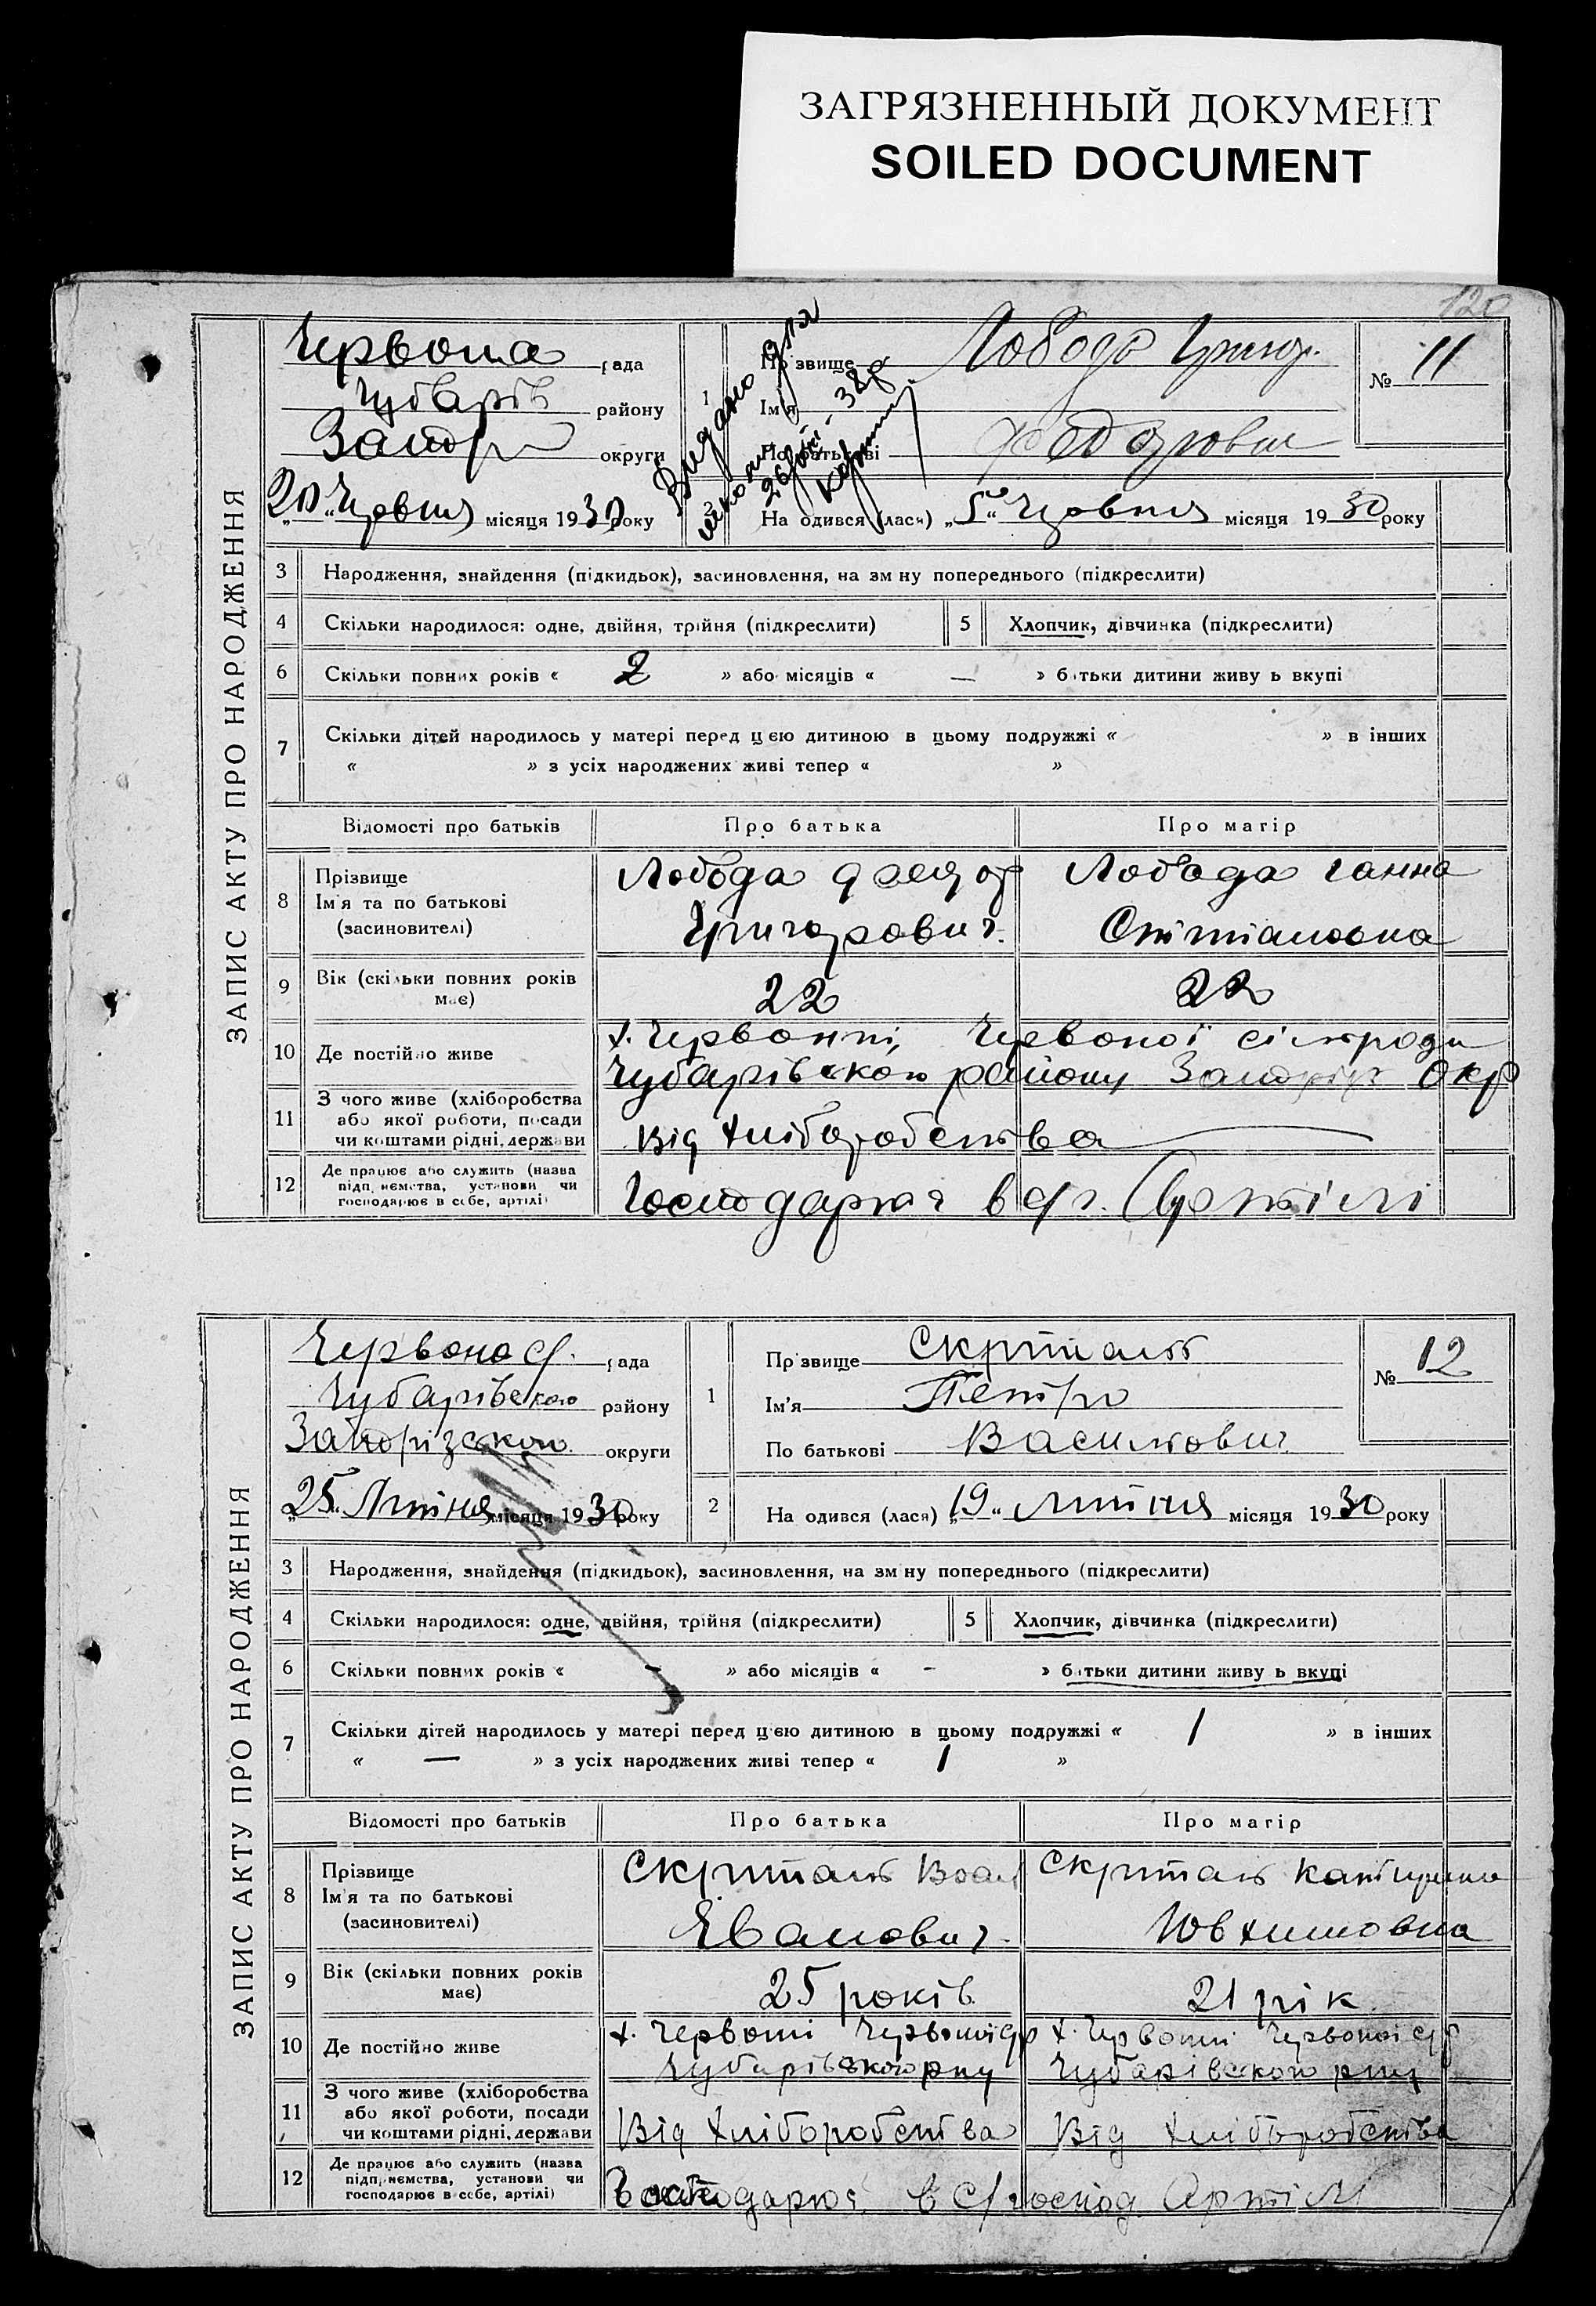 ЗАГРЯЗНЕННЫЙ ДОКУМЕНТ
SOILED DOCUMENT
120
ЗАПИС АКТУ ПРО НАРОДЖЕННЯ
Червона рада
Чубарів району
Запор округи
20 Червня місяця 1930 року
Видано для
школи
1 Прізвище Лобода Григор.
Ім'я
По батькові Федорович
№ 11
2 На одився (лася) „5“ Червня місяця 1930 року
3 Народження, знайдення (підкидьок), засиновлення, на зм ну попереднього (підкреслити)
4 Скільки народилося: одне, двійня, трійня (підкреслити) 5 Хлопчик, дівчинка (підкреслити)
6 Скільки повних років « 2 » або місяців « — » батьки дитини живу ь вкупі
7 Скільки дітей народилось у матері перед цєю дитиною в цьому подружжі « » в інших
« » з усіх народжених живі тепер « »
Відомості про батьків Про батька Про матір
8 Прізвище Ім'я та по батькові (засиновителі)
Лобода Федор Лобода Ганна
Григорович. Степановна
9 Вік (скільки повних років має) 22 22
10 Де постійно живе х. Червонні, Червоної сільради
Чубарівського району Запоріз Окр
11 З чого живе (хліборобства або якої роботи, посади чи коштами рідні, держави Від хліборобства
12 Де працює або служить (назва підприємства, установи чи господарює в себе, артілі) Господарює в с/г. Артілі
ЗАПИС АКТУ ПРО НАРОДЖЕННЯ
Червона с/. рада
Чубарівського району
Запорізького округи
„25“ Липня місяця 1930 року
1 Прізвище Скрипаль
Ім'я Петро
По батькові Васильович
№ 12
2 На одився (лася) „19“ Липня місяця 1930 року
3 Народження, знайдення (підкидьок), засиновлення, на зм ну попереднього (підкреслити)
4 Скільки народилося: одне, двійня, трійня (підкреслити) 5 Хлопчик, дівчинка (підкреслити)
6 Скільки повних років « - » або місяців « - » батьки дитини живу ь вкупі
7 Скільки дітей народилось у матері перед цєю дитиною в цьому подружжі « 1 » в інших
« — » з усіх народжених живі тепер « 1 »
Відомості про батьків Про батька Про матір
8 Прізвище Ім'я та по батькові (засиновителі)
Скрипаль Васил Скрипаль Катирина
Еванович. Ювхимовна
9 Вік (скільки повних років має) 25 років 21 рік
10 Де постійно живе х. Червонні Червоної с/р х. Червонні Червоної с/р
Чубарівського рну Чубарівського рну
11 З чого живе (хліборобства або якої роботи, посади чи коштами рідні, держави Від хліборобства Від хліборобства
12 Де працює або служить (назва підприємства, установи чи господарює в себе, артілі) Господарює в с/господ Артілі